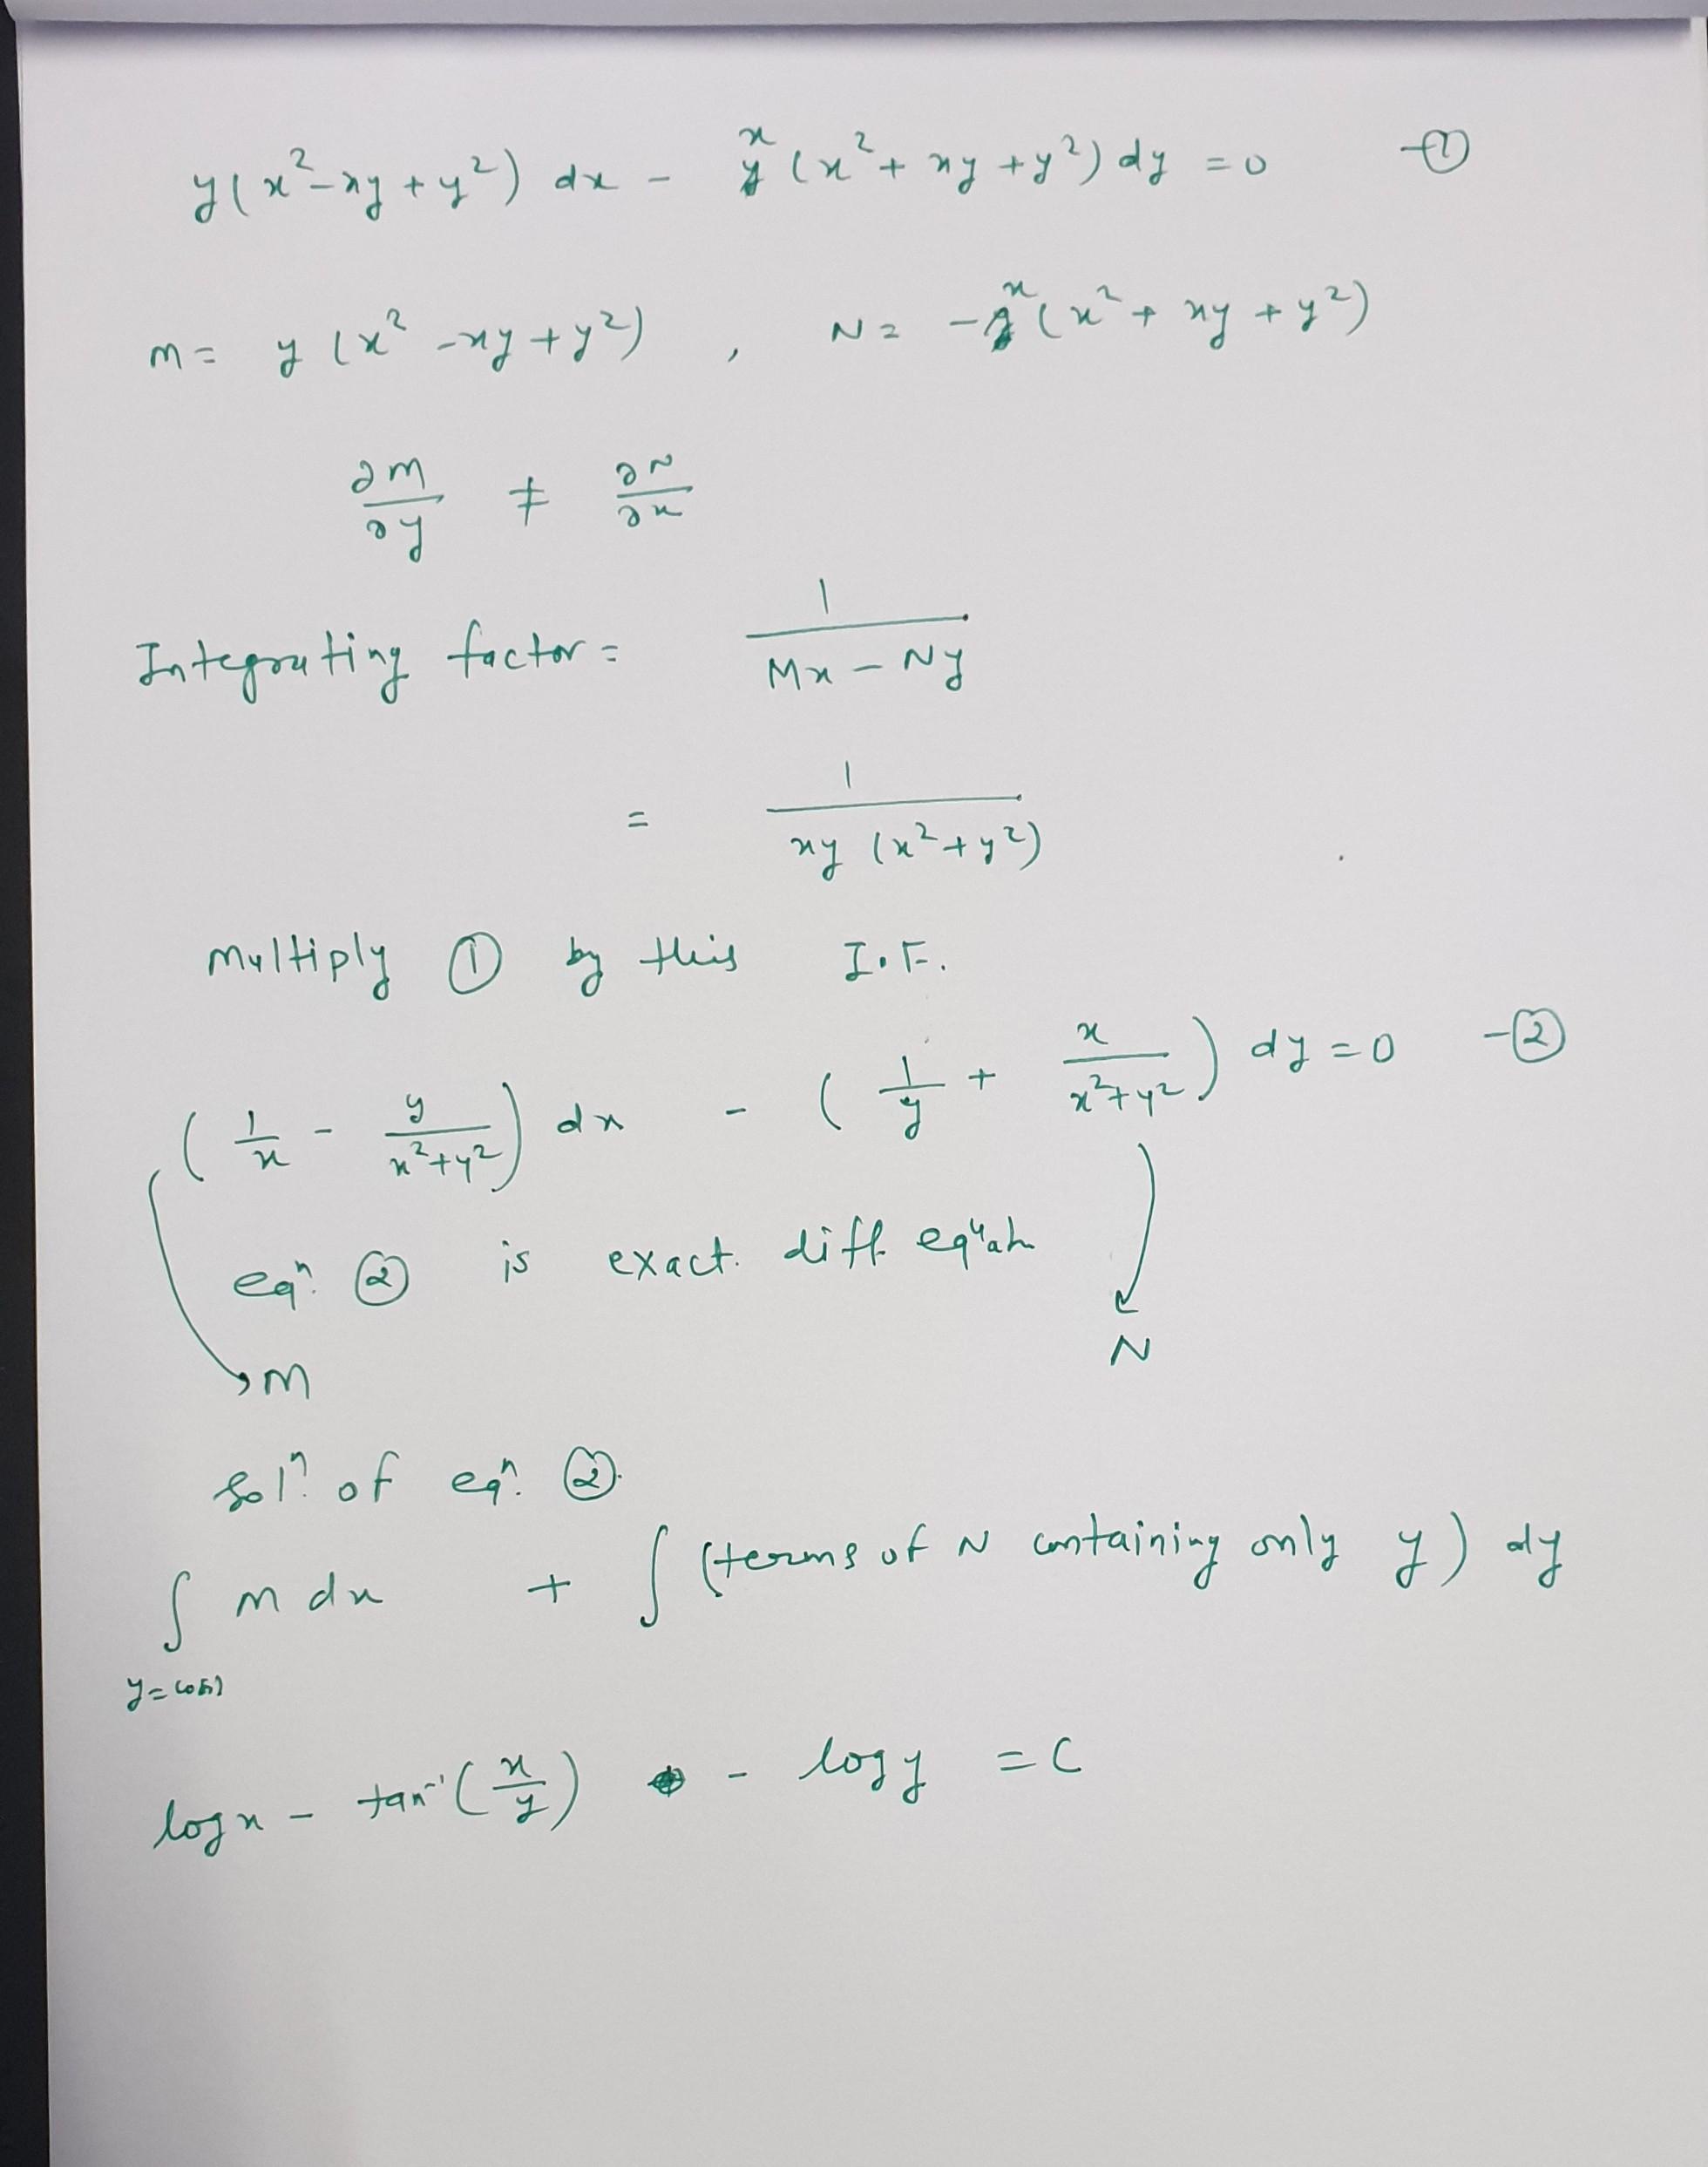 y(x²-xy+y²) dx - x(x²+xy+y²) dy = 0 -①
M = y(x²-xy+y²) , N = -x(x²+xy+y²)
∂M/∂y ≠ ∂N/∂x
Integrating factor = 1/(Mx - Ny)
= 1/(xy (x²+y²))
Multiply ① by this I.F.
(1/x - y/(x²+y²)) dx - (1/y + x/(x²+y²)) dy = 0 -②
eqⁿ. ② is exact. diff. equatn
N
M
solⁿ. of eqⁿ. ②.
∫ M dx + ∫ (terms of N containing only y) dy
y = const
log x - tan⁻¹(x/y) - log y = C